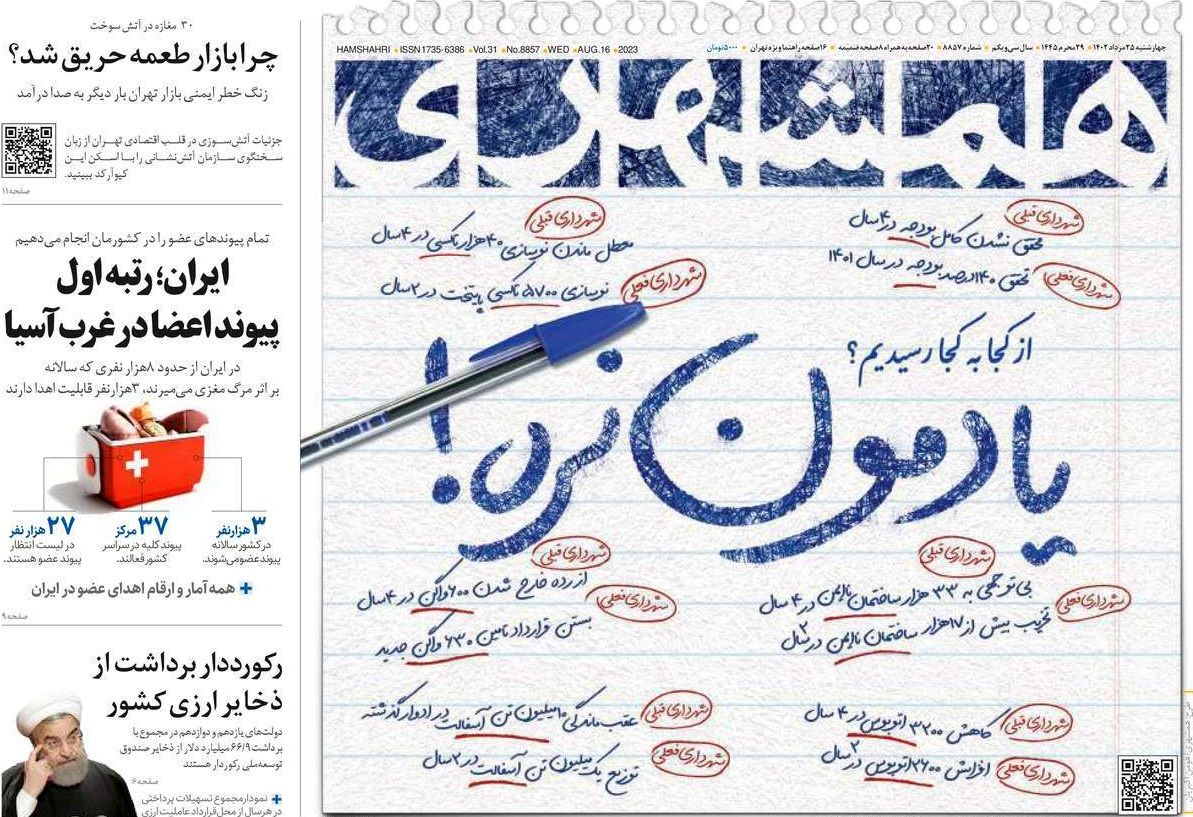 چهارشنبه ۲۵ مرداد ۱۴۰۲ • ۲۹ محرم ۱۴۴۵ • سال سی‌ویکم • شماره ۸۸۵۷ • ۲۰ صفحه به همراه ۸ صفحه ضمیمه • ۱۶ صفحه راهنما ویژه تهران • ۵۰۰۰ تومان
HAMSHAHRI • ISSN 1735-6386 • Vol.31 • No.8857 • WED • AUG.16 • 2023
همشهری
شهرداری قبلی
محقق نشدن کامل بودجه در ۴ سال
شهرداری فعلی
تحقق ۱۴۰ درصد بودجه در سال ۱۴۰۱
شهرداری قبلی
معطل ماندن نوسازی ۴۰ هزار تاکسی در ۴ سال
شهرداری فعلی
نوسازی ۵۷۰۰ تاکسی پایتخت در ۲ سال
از کجا به کجا رسیدیم؟
یادمون نره!
شهرداری قبلی
بی‌توجهی به ۳۳ هزار ساختمان ناایمن در ۴ سال
شهرداری فعلی
تخریب بیش از ۱۷ هزار ساختمان ناایمن در ۲ سال
شهرداری قبلی
از رده خارج شدن ۶۰۰ واگن در ۴ سال
شهرداری فعلی
بستن قرارداد تامین ۶۳۰ واگن جدید
شهرداری قبلی
کاهش ۳۲۰۰ اتوبوس در ۴ سال
شهرداری فعلی
افزایش ۲۶۰۰ اتوبوس در ۲ سال
شهرداری قبلی
عقب ماندگی ۱۰ میلیون تن آسفالت در ادوار گذشته
شهرداری فعلی
توزیع یک میلیون تن آسفالت در ۲ سال
۳۰ مغازه در آتش سوخت
چرا بازار طعمه حریق شد؟
زنگ خطر ایمنی بازار تهران بار دیگر به صدا درآمد
جزئیات آتش‌سوزی در قلب اقتصادی تهران از زبان
سخنگوی سازمان آتش‌نشانی را با اسکن این
کیوآرکد ببینید.
صفحه ۱۱
تمام پیوندهای عضو را در کشورمان انجام می‌دهیم
ایران؛ رتبه اول
پیوند اعضا در غرب آسیا
در ایران از حدود ۸ هزار نفری که سالانه
بر اثر مرگ مغزی می‌میرند، ۳ هزار نفر قابلیت اهدا دارند
۳ هزار نفر
در کشور سالانه
پیوند عضو می‌شوند.
۳۷ مرکز
پیوند کلیه در سراسر
کشور فعالند.
۲۷ هزار نفر
در لیست انتظار
پیوند عضو هستند.
+ همه آمار و ارقام اهدای عضو در ایران
صفحه ۹
رکورددار برداشت از
ذخایر ارزی کشور
دولت‌های یازدهم و دوازدهم در مجموع با
برداشت ۶۶/۹ میلیارد دلار از ذخایر صندوق
توسعه ملی رکوردار هستند
صفحه ۶
+ نمودار مجموع تسهیلات پرداختی
در هر سال از محل قرارداد عاملیت ارزی